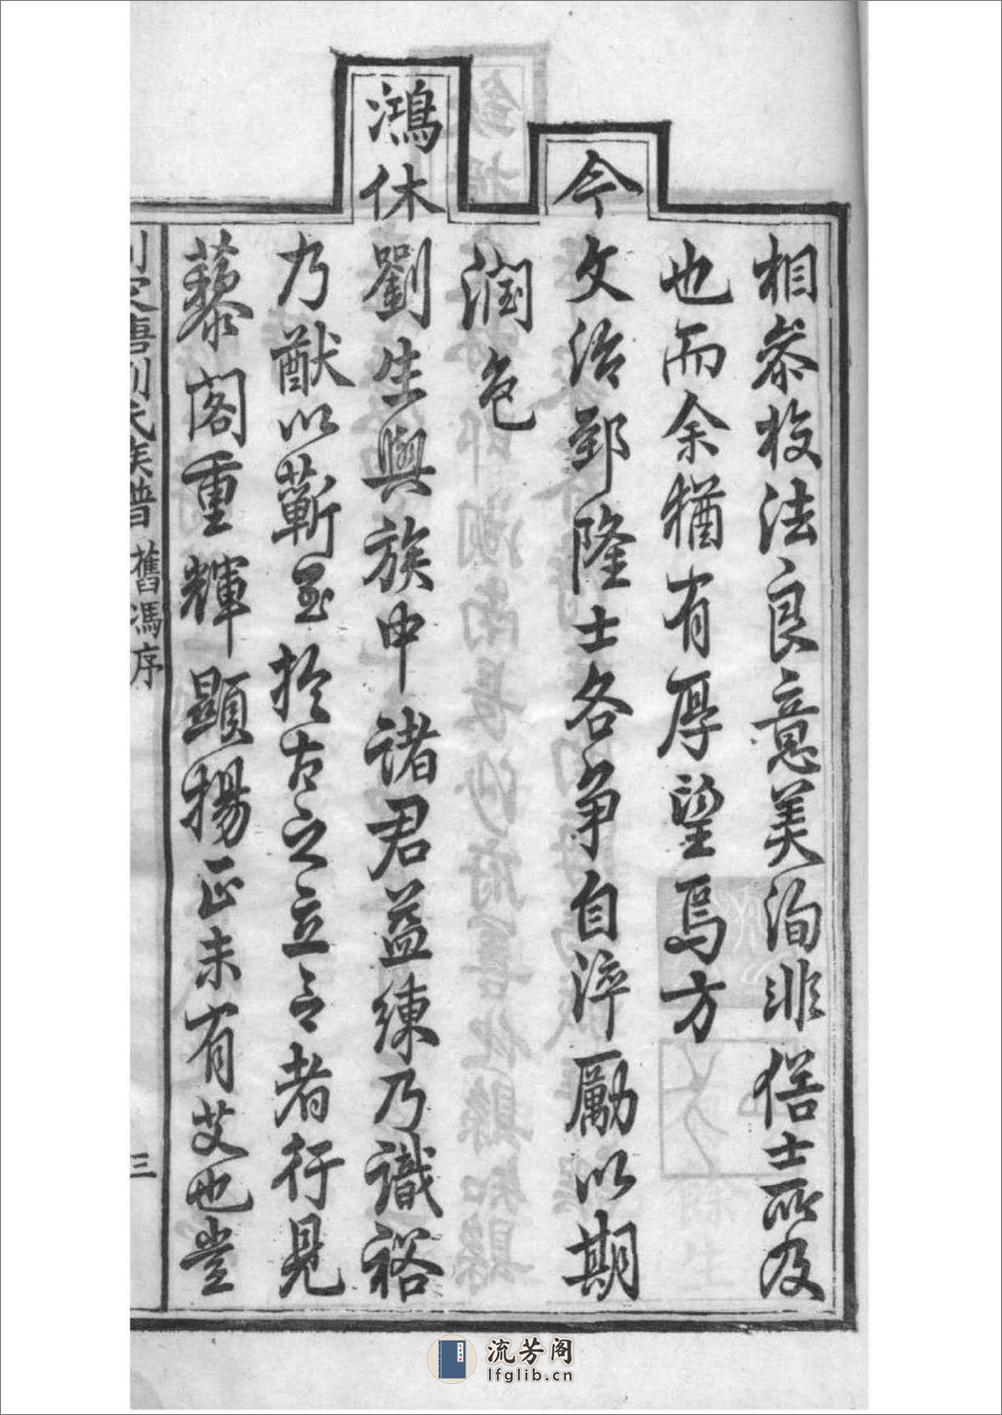 相參校法良意美洵非俗士所及
也而余猶有厚望焉方
今文治郅隆士各争自淬厲以期
潤色
鴻休劉生與族中諸君益練乃識裕
乃猷以蘄至於古之立言者行見
藜閣重輝顯揚正未有艾也豈
氏族譜 舊馮序
三
流芳阁
lfglib.cn